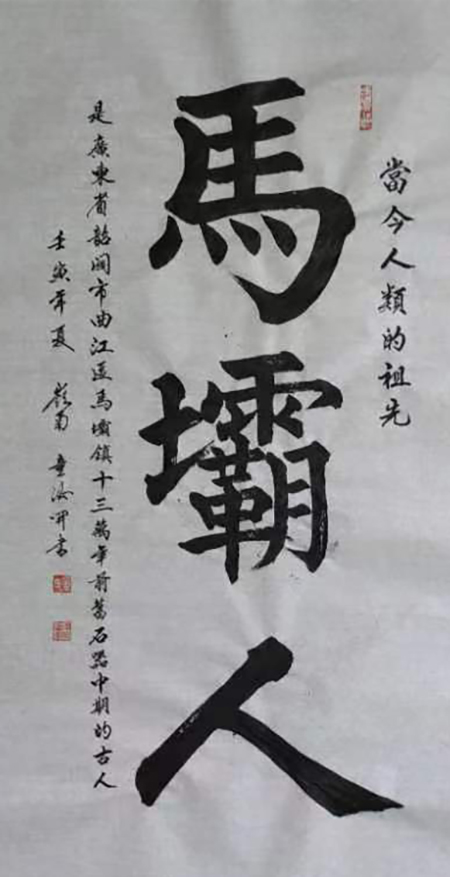 當今人類的祖先
馬壩人
是廣東省韶關市曲江區馬壩鎮十三萬年前舊石器中期的古人
壬寅年夏 嶺南 書